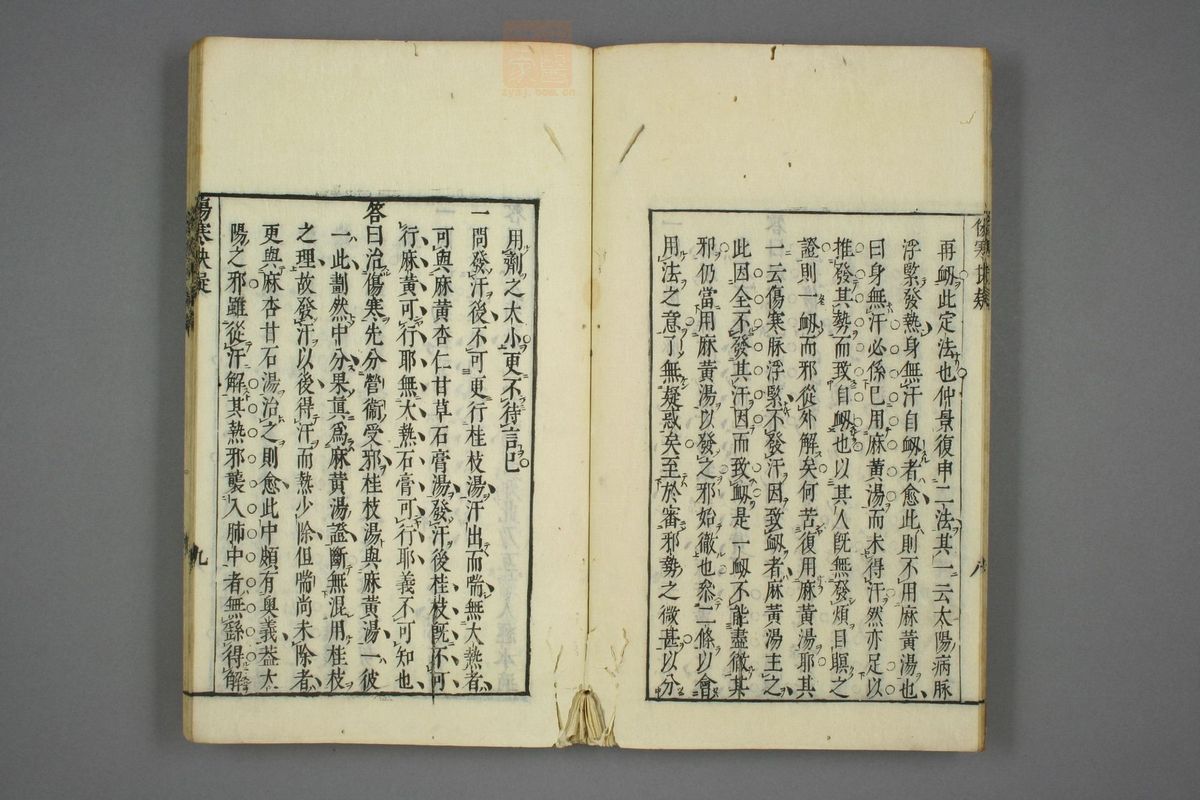 傷寒抉疑
再衂此定法也仲景復申二法其一云太陽病脉
浮緊發熱身無汗自衂者愈此則不用麻黃湯也
曰身無汗必係已用麻黃湯而未得汗然亦足以
推發其勢而致自衂也以其人旣無發煩目瞑之
證則一衂而邪從外解矣何苦復用麻黃湯耶其
一云傷寒脉浮緊不發汗因致衂者麻黃湯主之
此因全不發其汗因而致衂是一衂不能盡徹其
邪仍當用麻黃湯以發之邪始徹也叅二條以會
用法之意了無疑惑矣至於審邪勢之微甚以分
用劑之大小更不待言已
一問發汗後不可更行桂枝湯汗出而喘無大熱者
可與麻黃杏仁甘草石膏湯發汗後桂枝旣不可
行麻黃可行耶無大熱石膏可行耶義不可知也
答曰治傷寒先分營衞受邪桂枝湯與麻黃湯一彼
一此劃然中分果眞爲麻黃湯證斷無混用桂枝
之理故發汗以後得汗而熱少除但喘尚未除者
更與麻杏甘石湯治之則愈此中頗有奧義葢太
陽之邪雖從汗解其熱邪襲入肺中者無繇得解
傷寒抉疑
九